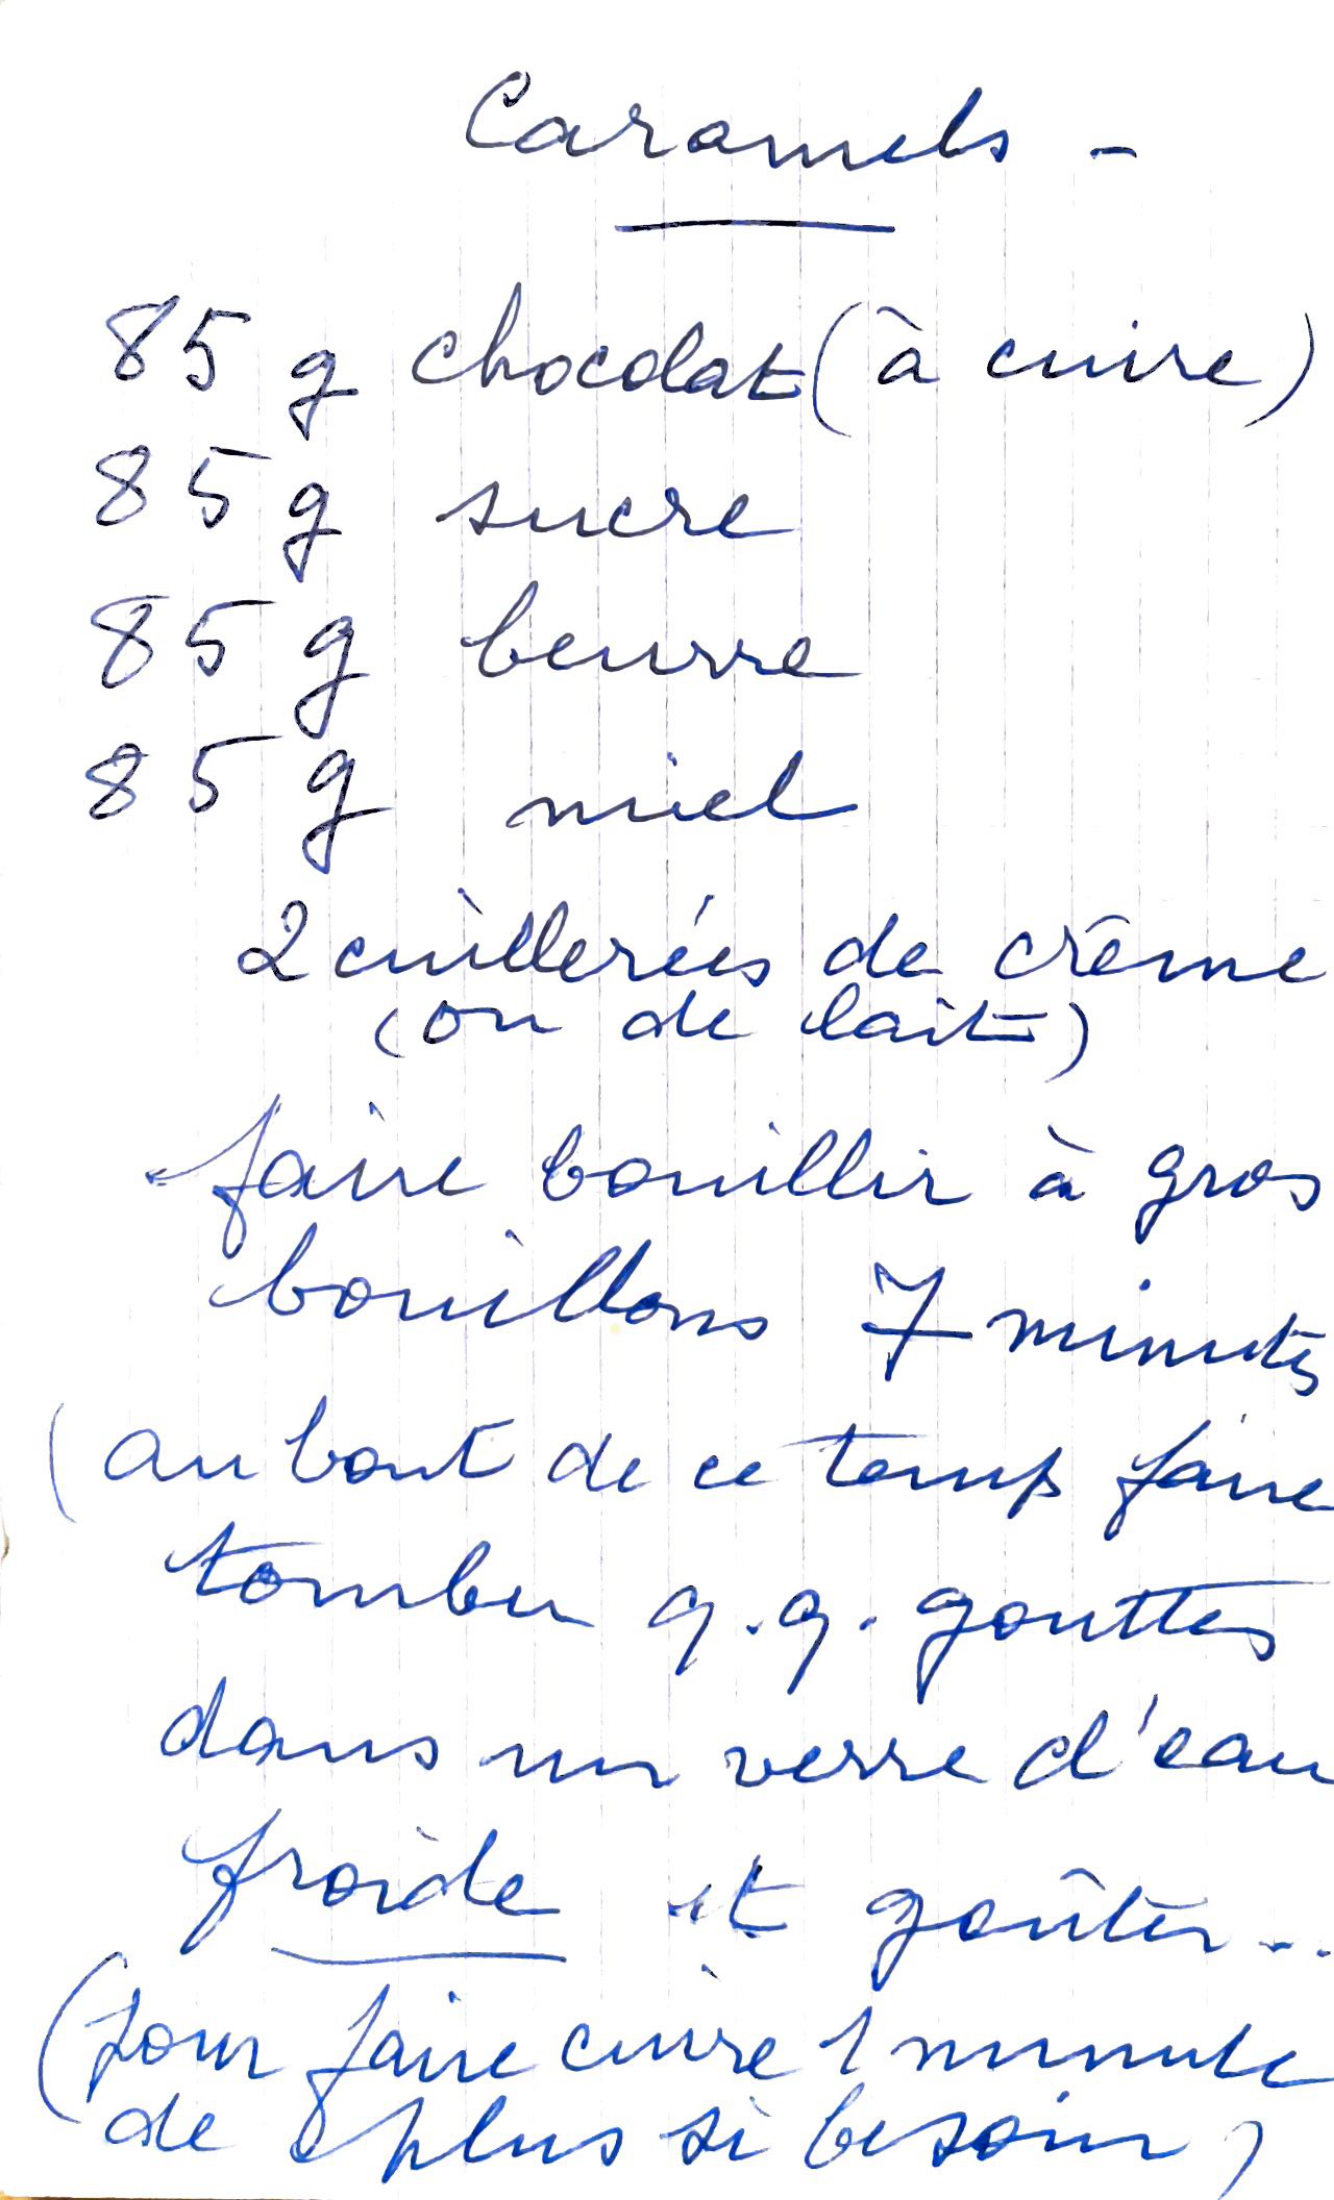 Caramels -
85 g chocolat (à cuire)
85 g sucre
85 g beurre
85 g miel
2 cuillerées de crême
(ou de lait)
faire bouillir à gros
bouillons 7 minutes
(au bout de ce temps faire
tomber q.q. gouttes
dans un verre d'eau
froide et goûter...
(pour faire cuire 1 minute
de plus si besoin)